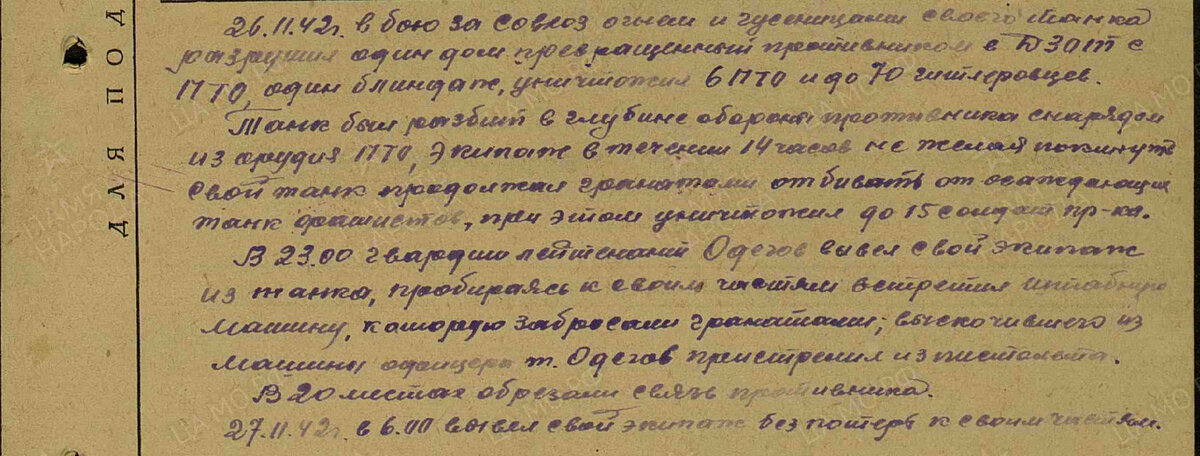 26.11.42г. в бою за совхоз огнем и гусеницами своего танка
разрушил один дом превращенный противником в ДЗОТ с
ПТО, один блиндаж, уничтожил 6 ПТО и до 70 гитлеровцев.
Танк был разбит в глубине обороны противника снарядом
из орудия ПТО, Экипаж в течении 14 часов не желая покинуть
свой танк продолжал гранатами отбивать от осаждающих
танк фашистов, при этом уничтожил до 15 солдат пр-ка.
В 23.00 гвардии лейтенант Одегов вывел свой экипаж
из танка, пробираясь к своим частям встретил штабную
машину, которую забросали гранатами; выскочившего из
машины офицера т. Одегов пристрелил из пистолета.
В 20 местах обрезали связь противника.
27.11.42г. в 6.00 вывел свой экипаж без потерь к своим частям.
ДЛЯ ПОД